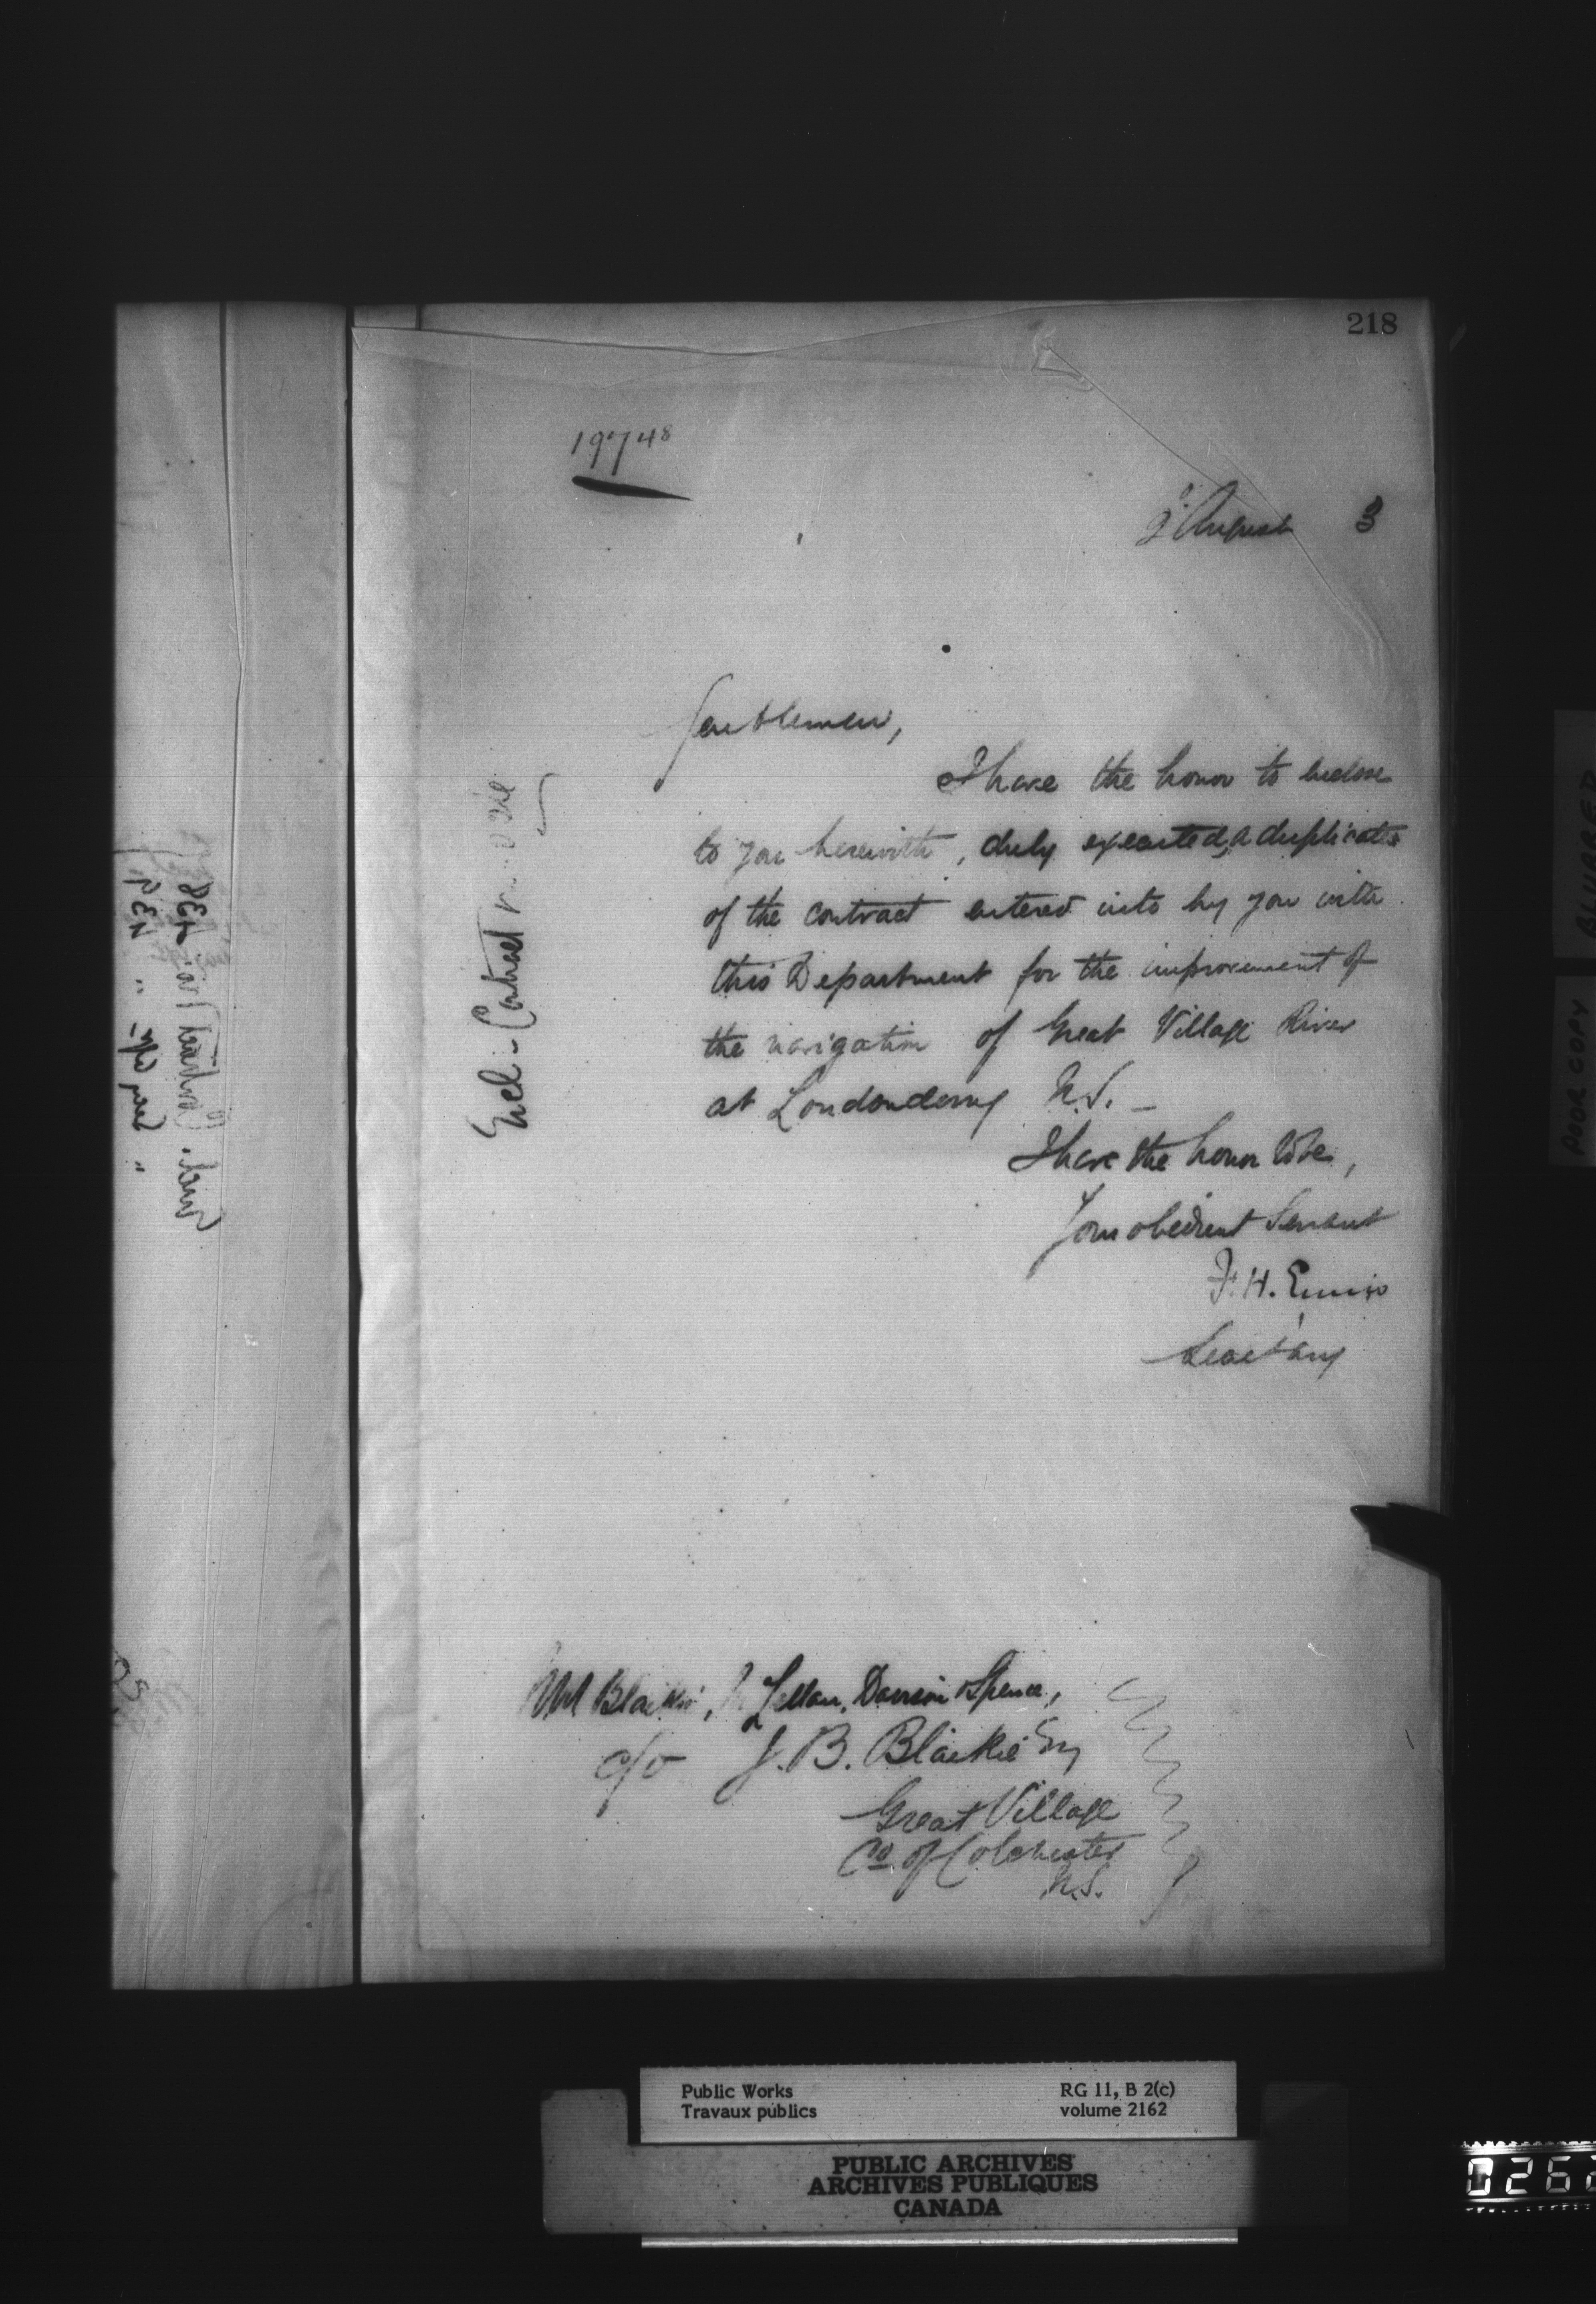 218
19748
2d August 3
Gentlemen,
I have the honor to enclose
to you herewith, duly executed, a duplicate
of the contract entered into by you with
this Department for the improvement of
the navigation of Great Village River
at Londonderry N.S. —
I have the honor to be,
Your obedient Servant
F. H. Ennis
Secretary
Encl - Contract
Blaikie, McLellan, Davison & Spence,
c/o J. B. Blaikie Esq
Great Village
Co of Colchester
N.S.
Public Works
Travaux publics
RG 11, B 2(c)
volume 2162
PUBLIC ARCHIVES
ARCHIVES PUBLIQUES
CANADA
POOR COPY
BLURRED